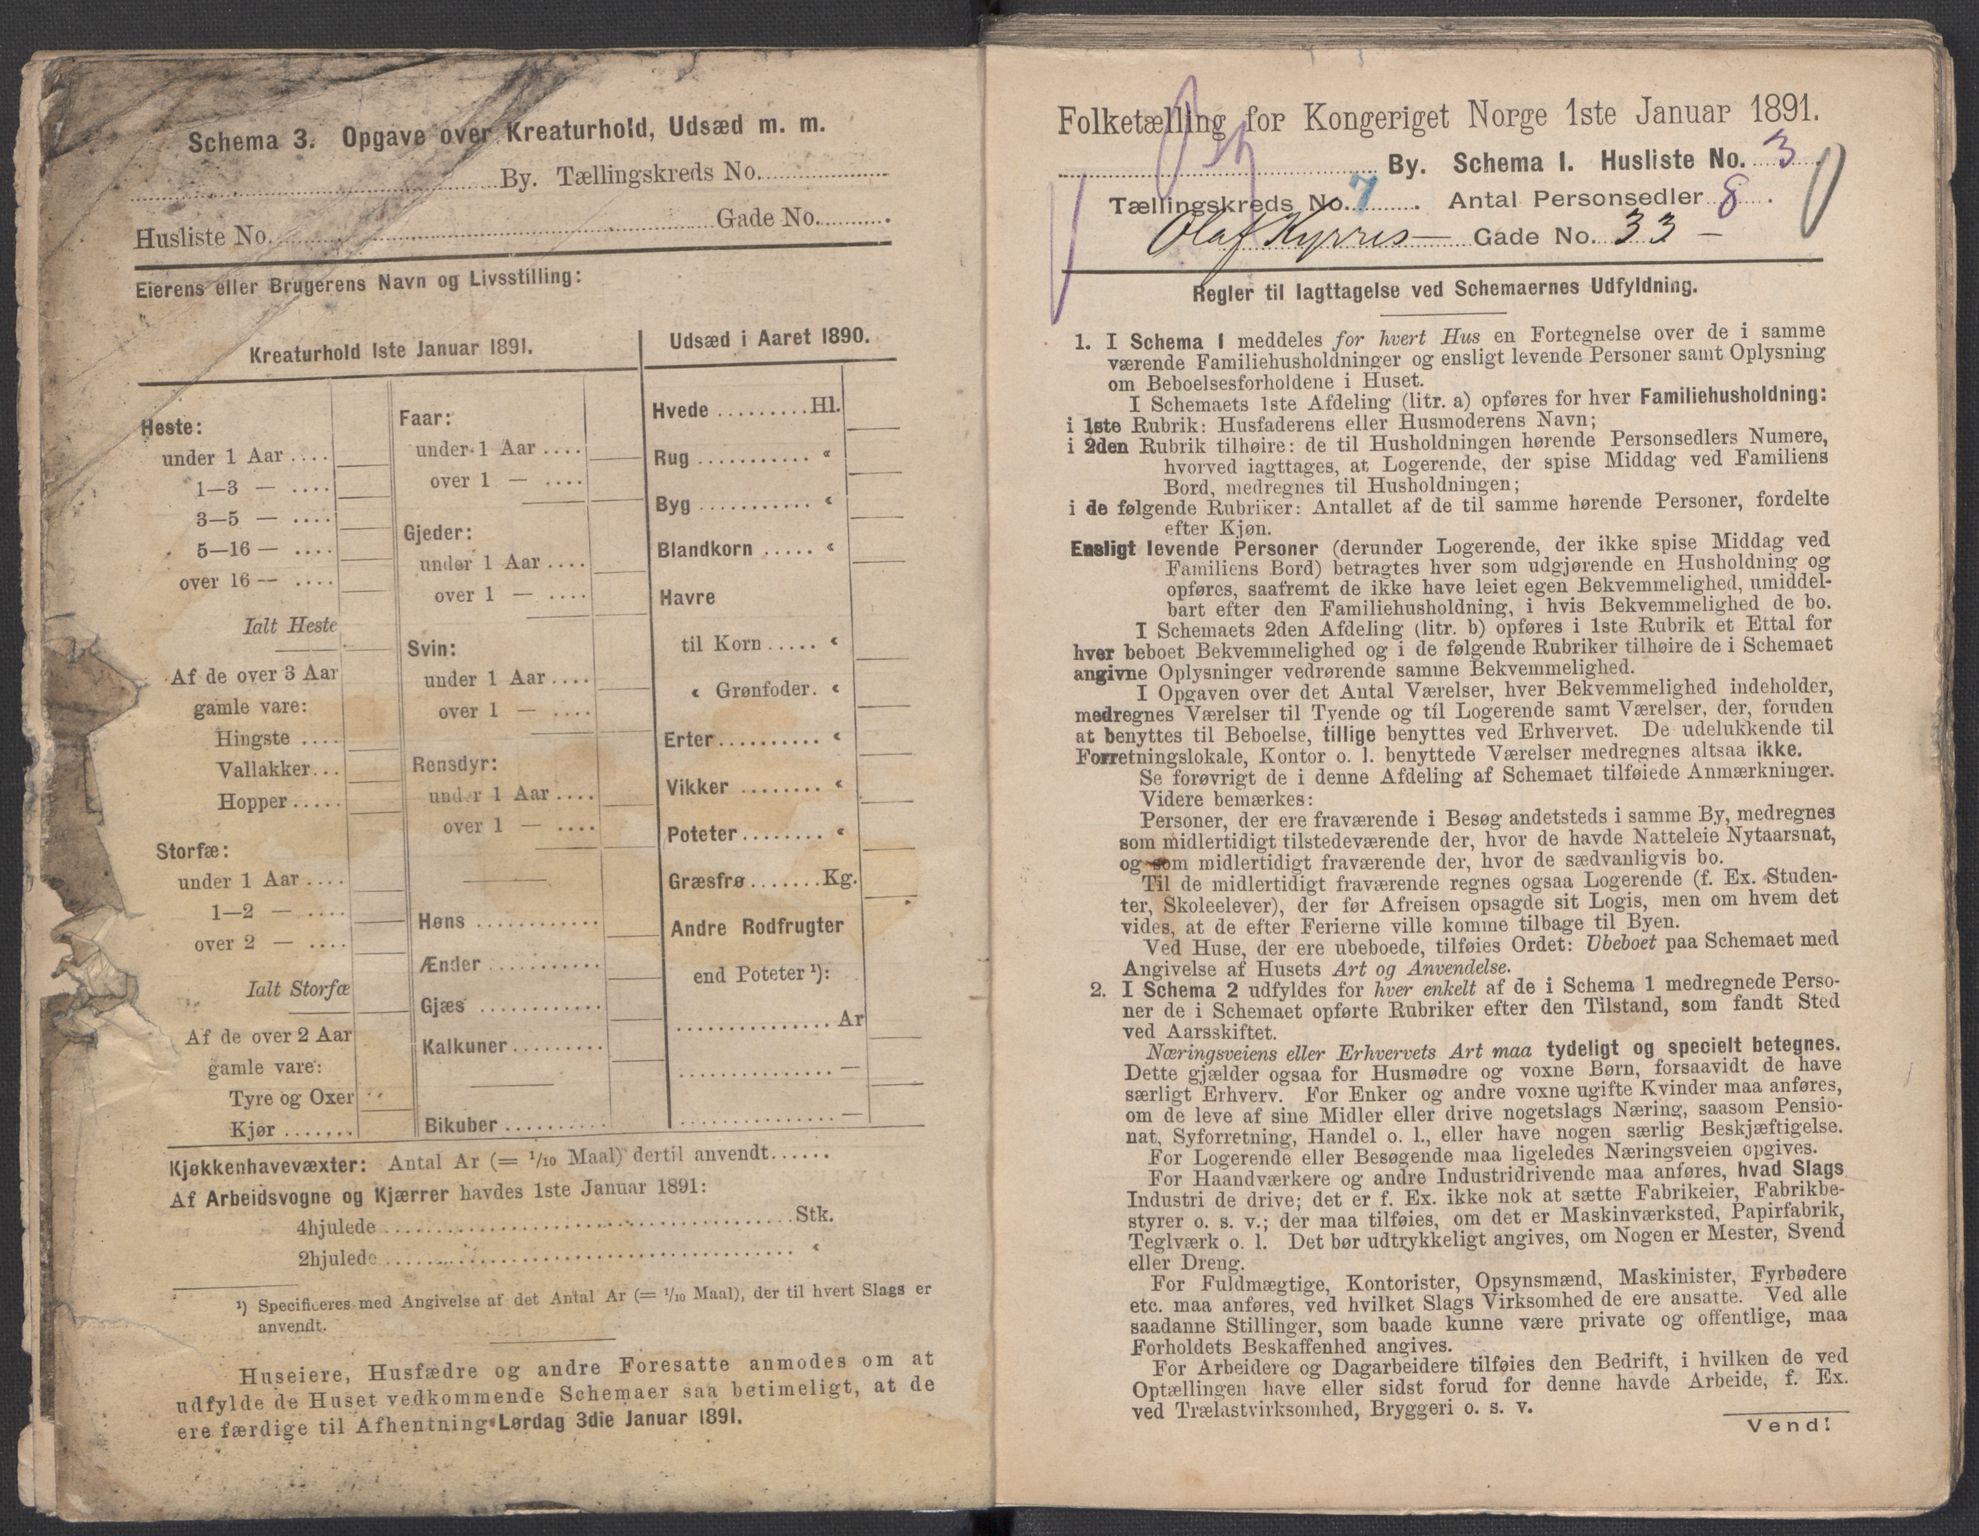 Schema 3. Opgave over Kreaturhold, Udsæd m. m.
By. Tællingskreds No.
Husliste No. Gade No.
Eierens eller Brugerens Navn og Livsstilling:
Kreaturhold 1ste Januar 1891.
Heste:
under 1 Aar ....
1—3 — ....
3—5 — ....
5—16 — ....
over 16 — ....
Ialt Heste
Af de over 3 Aar
gamle vare:
Hingste ....
Vallakker...
Hopper .....
Storfæ:
under 1 Aar ....
1—2 — ....
over 2 — ....
Ialt Storfæ
Af de over 2 Aar
gamle vare:
Tyre og Oxer
Kjør .......
Faar:
under 1 Aar ....
over 1 — ....
Gjeder:
under 1 Aar ....
over 1 — ....
Svin:
under 1 Aar ....
over 1 — ....
Rensdyr:
under 1 Aar ....
over 1 — ....
Høns ............
Ænder ...........
Gjæs ............
Kalkuner.........
Bikuber ..........
Udsæd i Aaret 1890.
Hvede .........Hl.
Rug ........... “
Byg ........... “
Blandkorn ..... “
Havre
til Korn ..... “
“ Grønfoder. “
Erter.......... “
Vikker ........ “
Poteter........ “
Græsfrø.......Kg.
Andre Rodfrugter
end Poteter ¹):
............... Ar
............... —
............... —
Kjøkkenhavevæxter: Antal Ar (= 1/10 Maal) dertil anvendt......
Af Arbeidsvogne og Kjærrer havdes 1ste Januar 1891:
4hjulede........................................Stk.
2hjulede........................................ “
¹) Specificeres med Angivelse af det Antal Ar (= 1/10 Maal), der til hvert Slags er
anvendt.
Huseiere, Husfædre og andre Foresatte anmodes om at
udfylde de Huset vedkommende Schemaer saa betimeligt, at de
ere færdige til Afhentning Lørdag 3die Januar 1891.
Folketælling for Kongeriget Norge 1ste Januar 1891.
By. Schema 1. Husliste No. 3
Tællingskreds No. 7. Antal Personsedler 8.
Olaf Kyrres — Gade No. 33 —
Regler til Iagttagelse ved Schemaernes Udfyldning.
1. I Schema 1 meddeles for hvert Hus en Fortegnelse over de i samme
værende Familiehusholdninger og ensligt levende Personer samt Oplysning
om Beboelsesforholdene i Huset.
I Schemaets 1ste Afdeling (litr. a) opføres for hver Familiehusholdning:
i 1ste Rubrik: Husfaderens eller Husmoderens Navn;
i 2den Rubrik tilhøire: de til Husholdningen hørende Personsedlers Numere,
hvorved iagttages, at Logerende, der spise Middag ved Familiens
Bord, medregnes til Husholdningen;
i de følgende Rubriker: Antallet af de til samme hørende Personer, fordelte
efter Kjøn.
Ensligt levende Personer (derunder Logerende, der ikke spise Middag ved
Familiens Bord) betragtes hver som udgjørende en Husholdning og
opføres, saafremt de ikke have leiet egen Bekvemmelighed, umiddel-
bart efter den Familiehusholdning, i hvis Bekvemmelighed de bo.
I Schemaets 2den Afdeling (litr. b) opføres i 1ste Rubrik et Ettal for
hver beboet Bekvemmelighed og i de følgende Rubriker tilhøire de i Schemaet
angivne Oplysninger vedrørende samme Bekvemmelighed.
I Opgaven over det Antal Værelser, hver Bekvemmelighed indeholder,
medregnes Værelser til Tyende og til Logerende samt Værelser, der, foruden
at benyttes til Beboelse, tillige benyttes ved Erhvervet. De udelukkende til
Forretningslokale, Kontor o. l. benyttede Værelser medregnes altsaa ikke.
Se forøvrigt de i denne Afdeling af Schemaet tilføiede Anmærkninger.
Videre bemærkes:
Personer, der ere fraværende i Besøg andetsteds i samme By, medregnes
som midlertidigt tilstedeværende der, hvor de havde Natteleie Nytaarsnat,
og som midlertidigt fraværende der, hvor de sædvanligvis bo.
Til de midlertidigt fraværende regnes ogsaa Logerende (f. Ex. Studen-
ter, Skoleelever), der før Afreisen opsagde sit Logis, men om hvem det
vides, at de efter Ferierne ville komme tilbage til Byen.
Ved Huse, der ere ubeboede, tilføies Ordet: Ubeboet paa Schemaet med
Angivelse af Husets Art og Anvendelse.
2. I Schema 2 udfyldes for hver enkelt af de i Schema 1 medregnede Perso-
ner de i Schemaet opførte Rubriker efter den Tilstand, som fandt Sted
ved Aarsskiftet.
Næringsveiens eller Erhvervets Art maa tydeligt og specielt betegnes.
Dette gjælder ogsaa for Husmødre og voxne Børn, forsaavidt de have
særligt Erhverv. For Enker og andre voxne ugifte Kvinder maa anføres,
om de leve af sine Midler eller drive nogetslags Næring, saasom Pensio-
nat, Syforretning, Handel o. l., eller have nogen særlig Beskjæftigelse.
For Logerende eller Besøgende maa ligeledes Næringsveien opgives.
For Haandværkere og andre Industridrivende maa anføres, hvad Slags
Industri de drive; det er f. Ex. ikke nok at sætte Fabrikeier, Fabrikbe-
styrer o. s. v.; der maa tilføies, om det er Maskinværksted, Papirfabrik,
Teglværk o. l. Det bør udtrykkeligt angives, om Nogen er Mester, Svend
eller Dreng.
For Fuldmægtige, Kontorister, Opsynsmænd, Maskinister, Fyrbødere
etc. maa anføres, ved hvilket Slags Virksomhed de ere ansatte. Ved alle
saadanne Stillinger, som baade kunne være private og offentlige, maa
Forholdets Beskaffenhed angives.
For Arbeidere og Dagarbeidere tilføies den Bedrift, i hvilken de ved
Optællingen have eller sidst forud for denne havde Arbeide, f. Ex.
ved Trælastvirksomhed, Bryggeri o. s. v.
Vend!